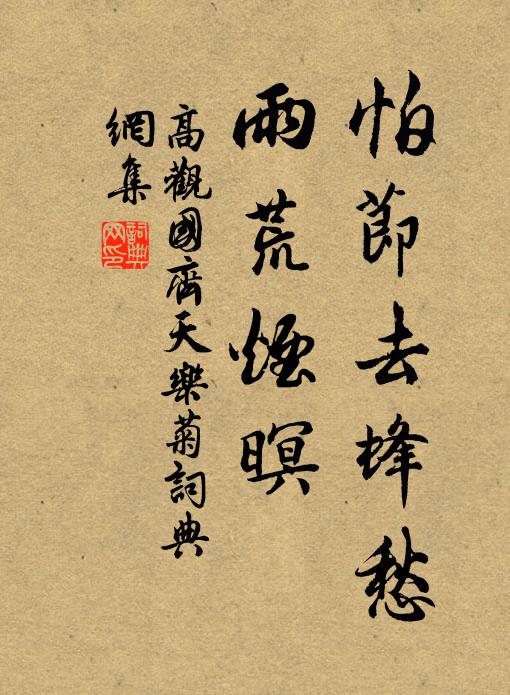 怕節去蜂愁
雨荒煙暝
高觀國齊天樂菊詞典
網集
詞典網印